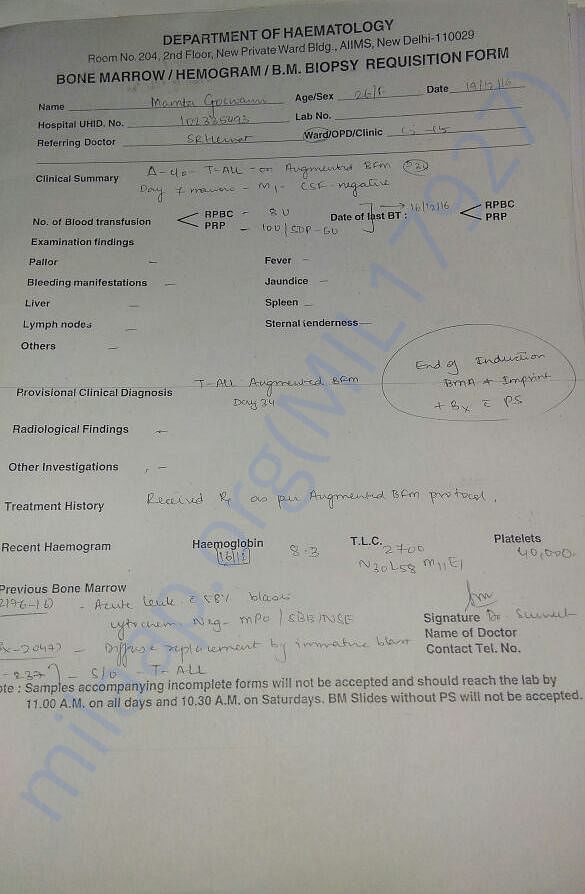 DEPARTMENT OF HAEMATOLOGY
Room No. 204, 2nd Floor, New Private Ward Bldg., AIIMS, New Delhi-110029
BONE MARROW / HEMOGRAM / B.M. BIOPSY REQUISITION FORM
Name Mamta Goswami Age/Sex 26/F Date 19/12/16
Hospital UHID. No. 102335493 Lab No.
Referring Doctor Ward/OPD/Clinic
Clinical Summary Δ - T-ALL - on Augmented BFM
Day marrow - M1 - CSF - negative
No. of Blood transfusion RPBC - 8U Date of last BT : → 16/12/16 RPBC
PRP - 10U/SDP-6U PRP
Examination findings
Pallor - Fever -
Bleeding manifestations - Jaundice -
Liver - Spleen -
Lymph nodes - Sternal tenderness -
Others -
End of Induction
BMA + Imprint
+ Bx c̄ PS
Provisional Clinical Diagnosis T-ALL Augmented BFM
Day 34
Radiological Findings -
Other Investigations -
Treatment History Received Rx as per Augmented BFM protocol.
Recent Haemogram Haemoglobin 8.3 T.L.C. 2700 Platelets 40,000
N30 L58 M11 E1
Previous Bone Marrow
- Acute leuk c̄ 58% blasts
cytochem Neg - MPO/SBB/NSE
Signature Dr.
Name of Doctor
- Diffuse replacement by immature blast
Contact Tel. No.
- S/O T-ALL
ote : Samples accompanying incomplete forms will not be accepted and should reach the lab by
11.00 A.M. on all days and 10.30 A.M. on Saturdays. BM Slides without PS will not be accepted.
milaap.org(MIL17927)